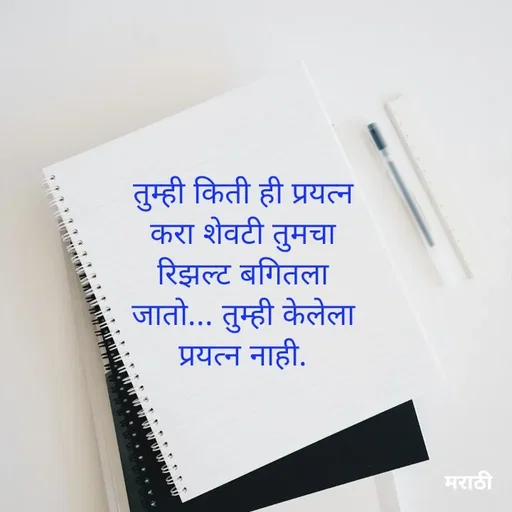 तुम्ही किती ही प्रयत्न
करा शेवटी तुमचा
रिझल्ट बगितला
जातो... तुम्ही केलेला
प्रयत्न नाही.
मराठी